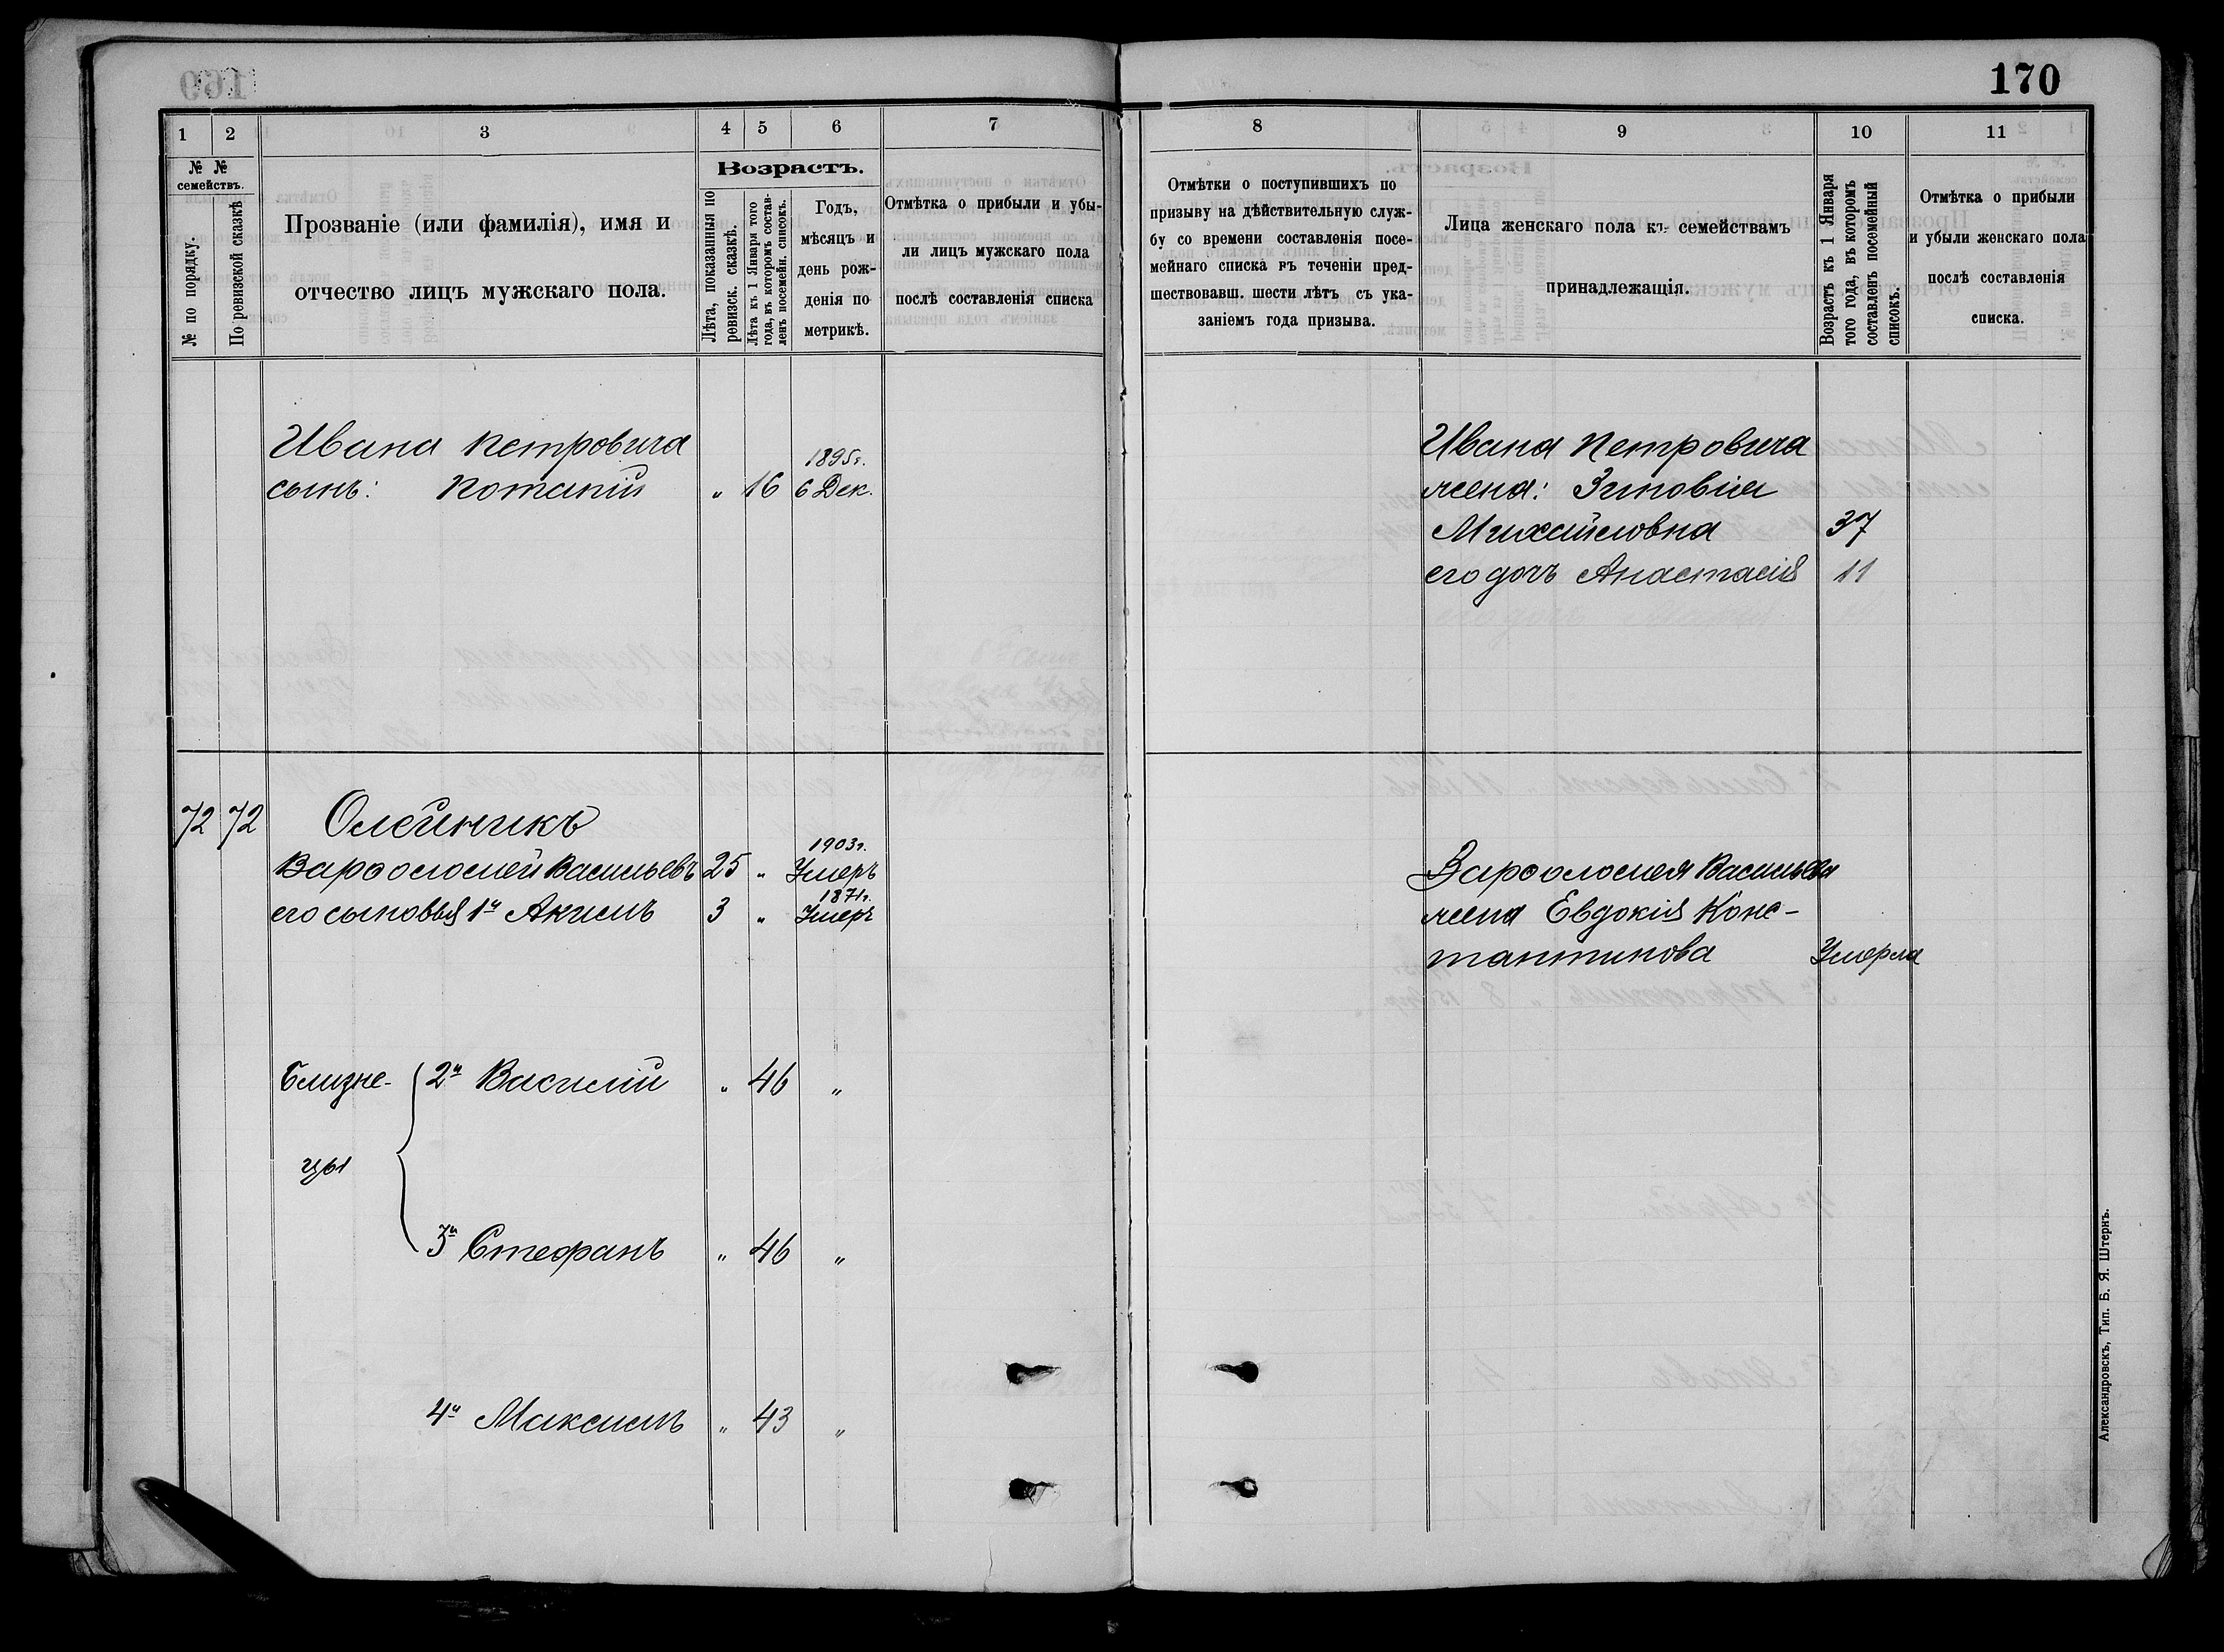 170
1 2 3 4 5 6 7
№ № семействъ.
№ по порядку.
По ревизской сказкѣ
Прозваніе (или фамилія), имя и
отчество лицъ мужскаго пола.
Возрастъ.
Лѣта, показанныя по
ревизск. сказкѣ.
Лѣта къ 1 Января того
года, въ которомъ состав-
ленъ посемейн. списокъ.
Годъ,
мѣсяцъ и
день рож-
денія по
метрикѣ.
Отмѣтка о прибыли и убы-
ли лицъ мужскаго пола
послѣ составленія списка
Ивана Петровича
1895г.
сынъ: Потапій " 16 6 Дек.
72 72 Олейникъ
1903г.
Варфоломей Васильевъ 25 " Умеръ
1871г.
его сыновья 1й Акимъ 3 " Умеръ
Близне- 2й Василій " 46 "
цы
3й Стефанъ " 46 "
4й Максимъ " 43 "
8 9 10 11
Отмѣтки о поступившихъ по
призыву на дѣйствительную служ-
бу со времени составленія посе-
мейнаго списка въ теченіи пред-
шествовавш. шести лѣтъ съ ука-
заніемъ года призыва.
Лица женскаго пола къ семействамъ
принадлежащія.
Возрастъ къ 1 Января
того года, въ которомъ
составленъ посемейный
списокъ.
Отмѣтка о прибыли
и убыли женскаго пола
послѣ составленія
списка.
Ивана Петровича
жена: Зиновія
Михайловна 37
его дочь Анастасія 11
Варфоломея Васильева
жена Евдокія Конс-
тантинова Умерла
Александровскъ, Тип. Б. Я. Штернъ.